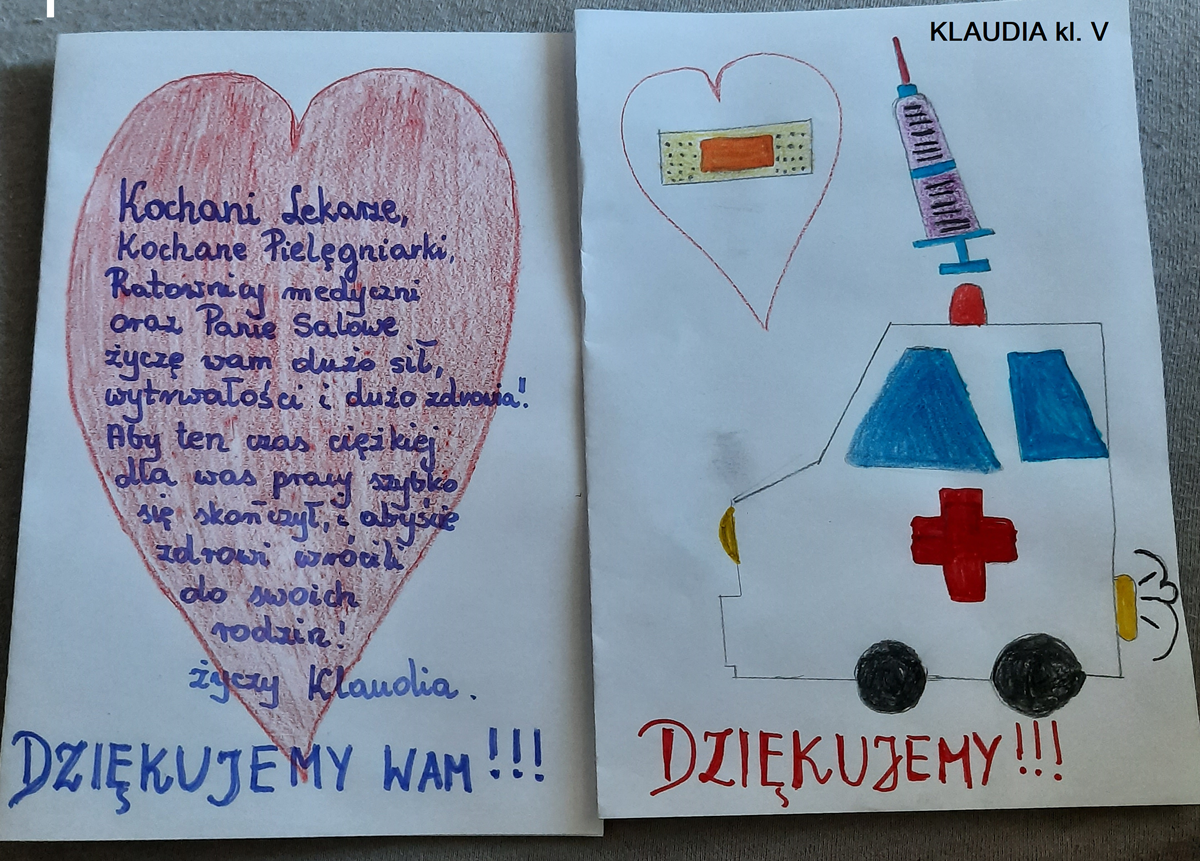 Kochani Lekarze,
Kochane Pielęgniarki,
Ratownicy medyczni
oraz Panie Salowe
życzę wam dużo sił,
wytrwałości i dużo zdrowia!
Aby ten czas ciężkiej
dla was pracy szybko
się skończył, i abyście
zdrowi wrócili
do swoich
rodzin!
życzy Klaudia.
DZIĘKUJEMY WAM!!!
KLAUDIA kl. V
DZIĘKUJEMY!!!